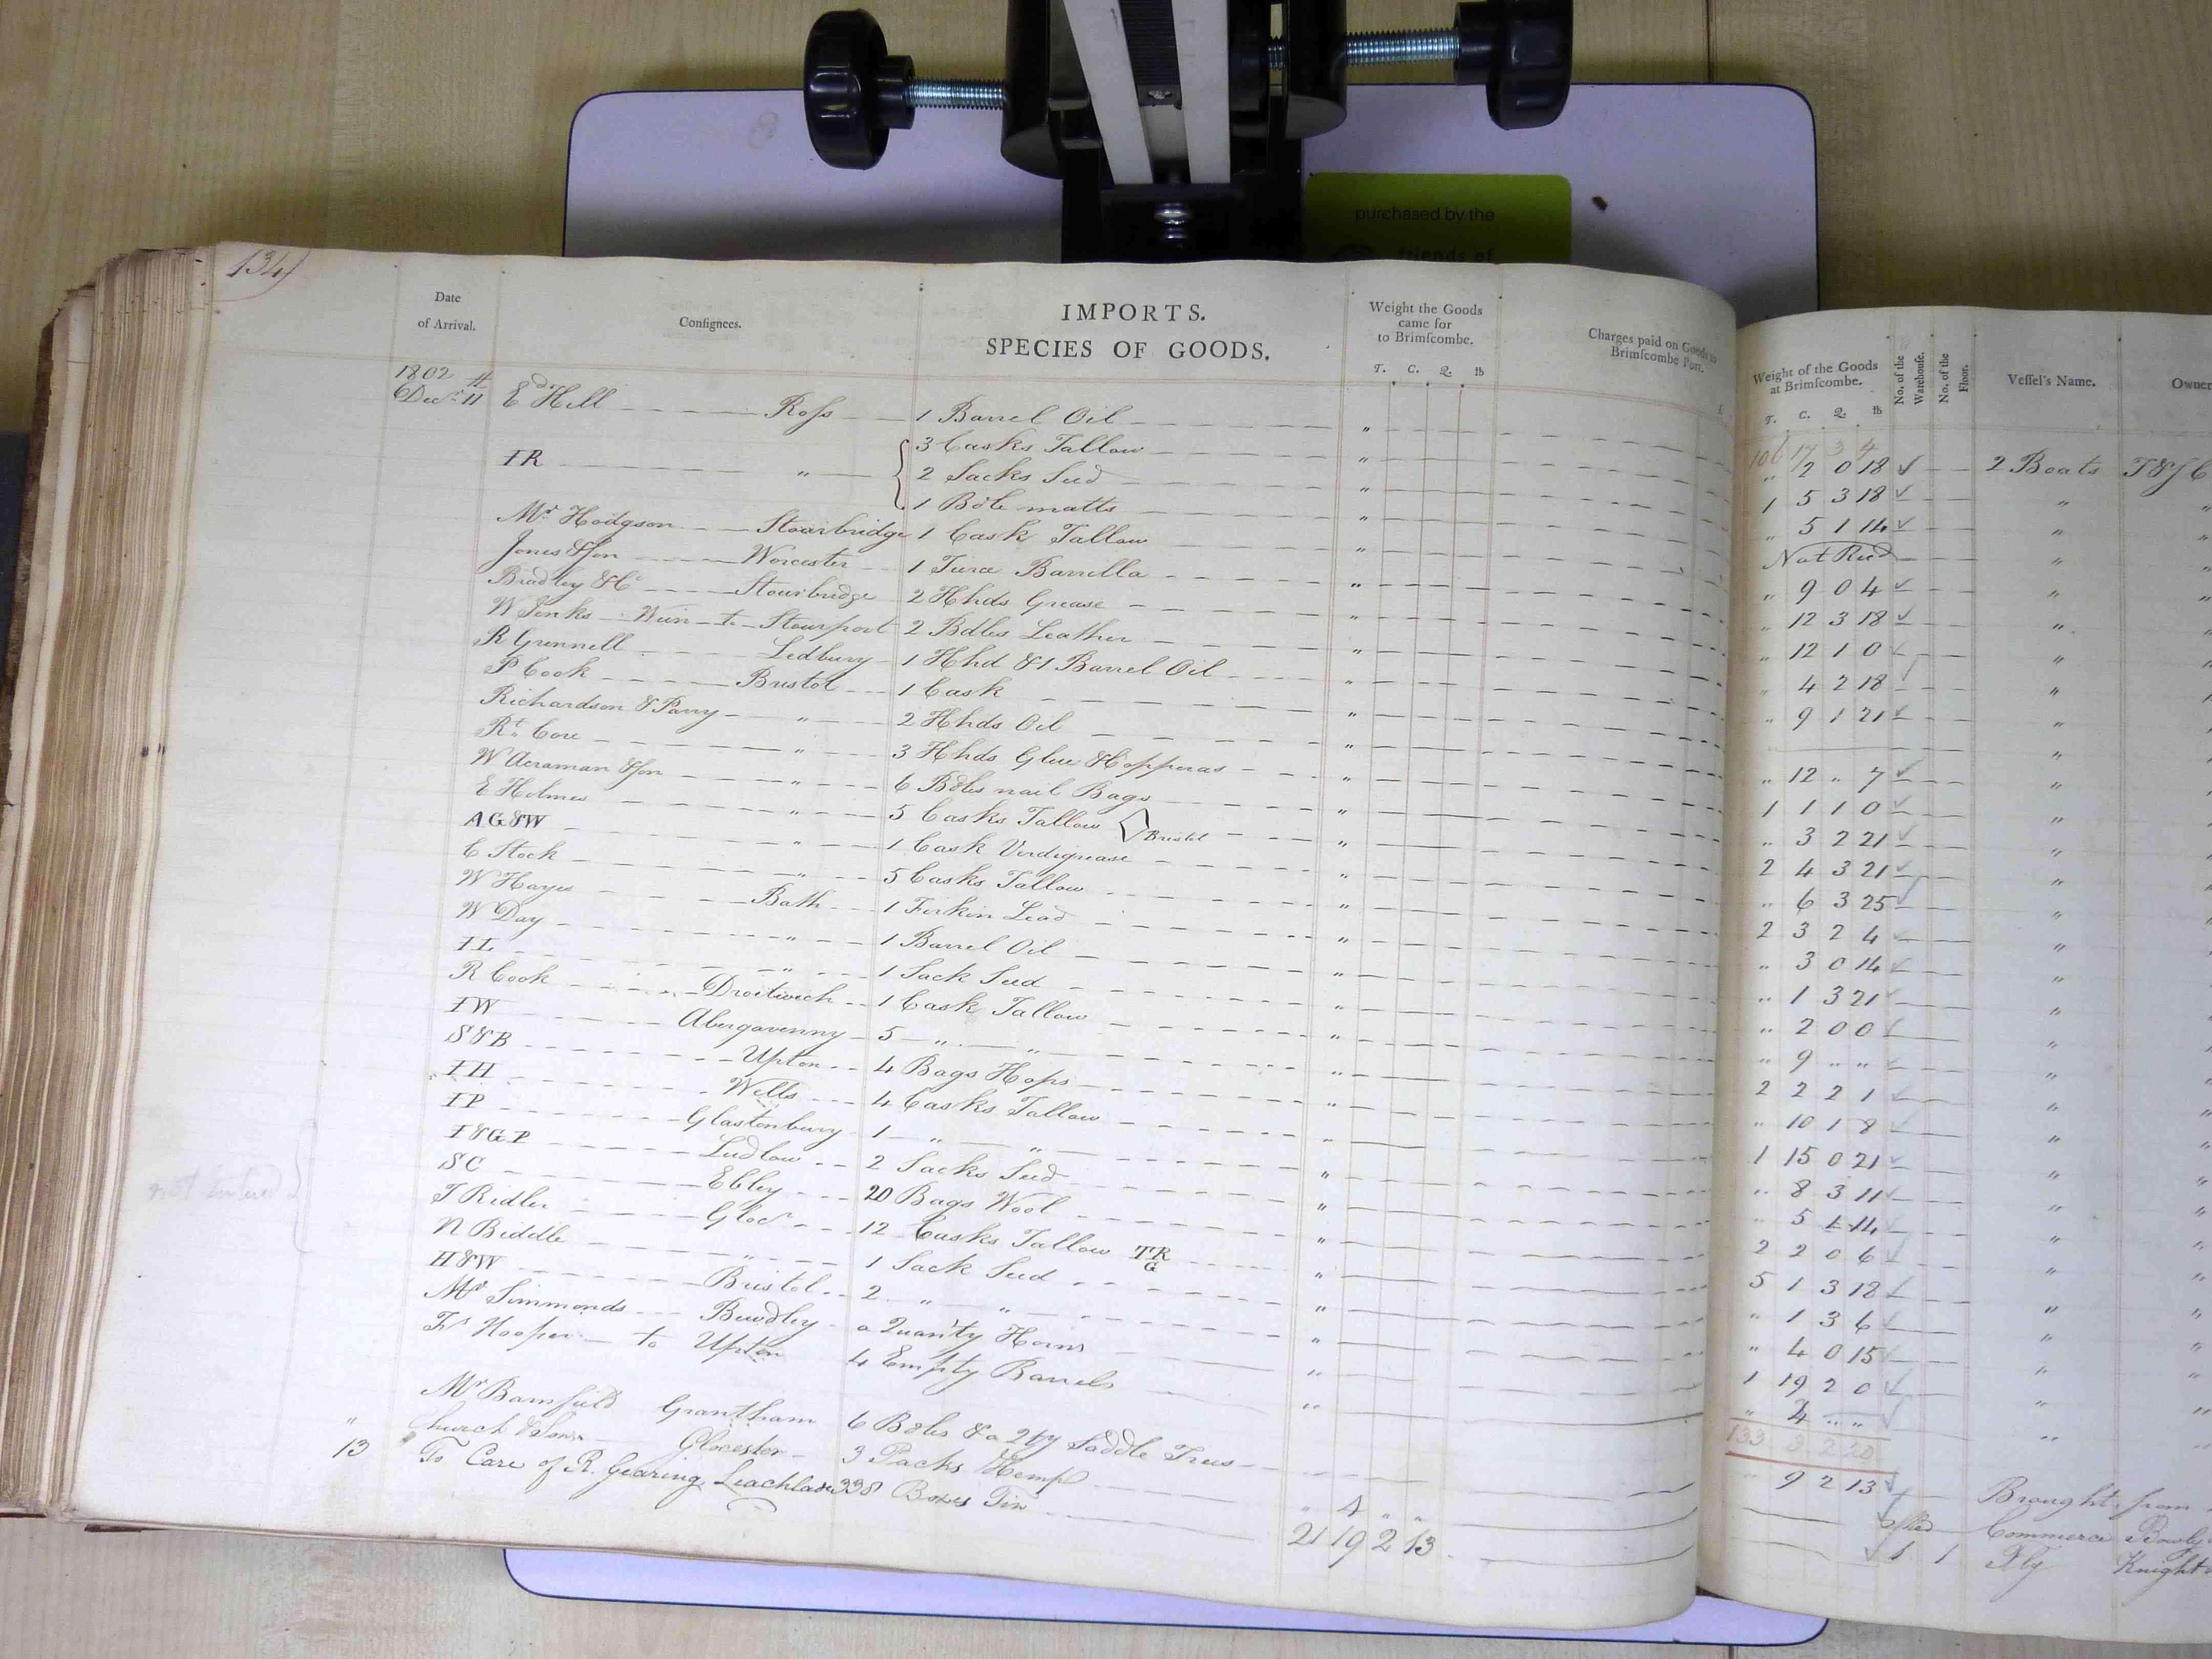 purchased by the
friends of
134
Date of Arrival. Consignees. IMPORTS. SPECIES OF GOODS. Weight the Goods came for to Brimscombe. T. C. Q. lb Charges paid on Goods to Brimscombe Port. Weight of the Goods at Brimscombe. T. C. Q. lb No. of the Warehouse. No. of the Floor. Vessel's Name. Owner
1802
106 17 3 4
Decr 11 Ed Hill Ross 1 Barrel Oil " " 2 0 18 2 Boats T&J C
IR " 3 Casks Tallow " 1 5 3 18 "
2 Sacks Seed " " 5 1 14 "
1 Bdle matts " Not Recd "
Mr Hodgson Stourbridge 1 Cask Tallow " " 9 0 4 "
Jones & Son Worcester 1 Tierce Barrilla " " 12 3 18 "
Bradley & Co Stourbridge 2 Hhds Grease " " 12 1 0 "
W Jenks Wein to Stourport 2 Bdles Leather " " 4 2 18 "
R Grennell Ledbury 1 Hhd & 1 Barrel Oil " " 9 1 21 "
P Cook Bristol 1 Cask " "
Richardson & Parry " 2 Hhds Oil " " 12 " 7 "
Rt Core " 3 Hhds Glue & Copperas " 1 1 1 0 "
W Acraman & Son " 6 Bdles nail Bags " " 3 2 21 "
E Holmes " 5 Casks Tallow Bristol " 2 4 3 21 "
AG&W " 1 Cask Verdigrease " " 6 3 25 "
C Stock " 5 Casks Tallow " 2 3 2 4 "
W Hayes Bath 1 Firkin Lead " " 3 0 14 "
W Day " 1 Barrel Oil " " 1 3 21 "
IL " 1 Sack Seed " " 2 0 0 "
R Cook Droitwich 1 Cask Tallow " " 9 " " "
IW Abergavenny 5 " " " 2 2 2 1 "
S&B Upton 4 Bags Hops " " 10 1 8 "
IH Wells 4 Casks Tallow " 1 15 0 21 "
IP Glastonbury 1 " " " " 8 3 11 "
I&GP Ludlow 2 Sacks Seed " " 5 1 14 "
SC Ebley 20 Bags Wool " 2 2 0 6 "
not Entered
T Ridler Glocr 12 Casks Tallow TR G " 5 1 3 18 "
N Biddle " 1 Sack Seed " " 1 3 6 "
H&W Bristol 2 " " " " 4 0 15 "
Mr Simmonds Bewdley a Quantity Horns " 1 19 2 0 "
Fs Hooper to Upton 4 Empty Barrels " " 2 " " "
133 3 2 20
Mr Bamfield Grantham 6 Bdles & a Qty Saddle Trees " 9 2 13 Brought from
" Church & Sons Glocester 3 Packs Hemp " 4 " " Commerce Bowly
13 To Care of R. Gearing Leachlade 338 Boxes Tin 21 19 2 13 1 1 Fly Knight